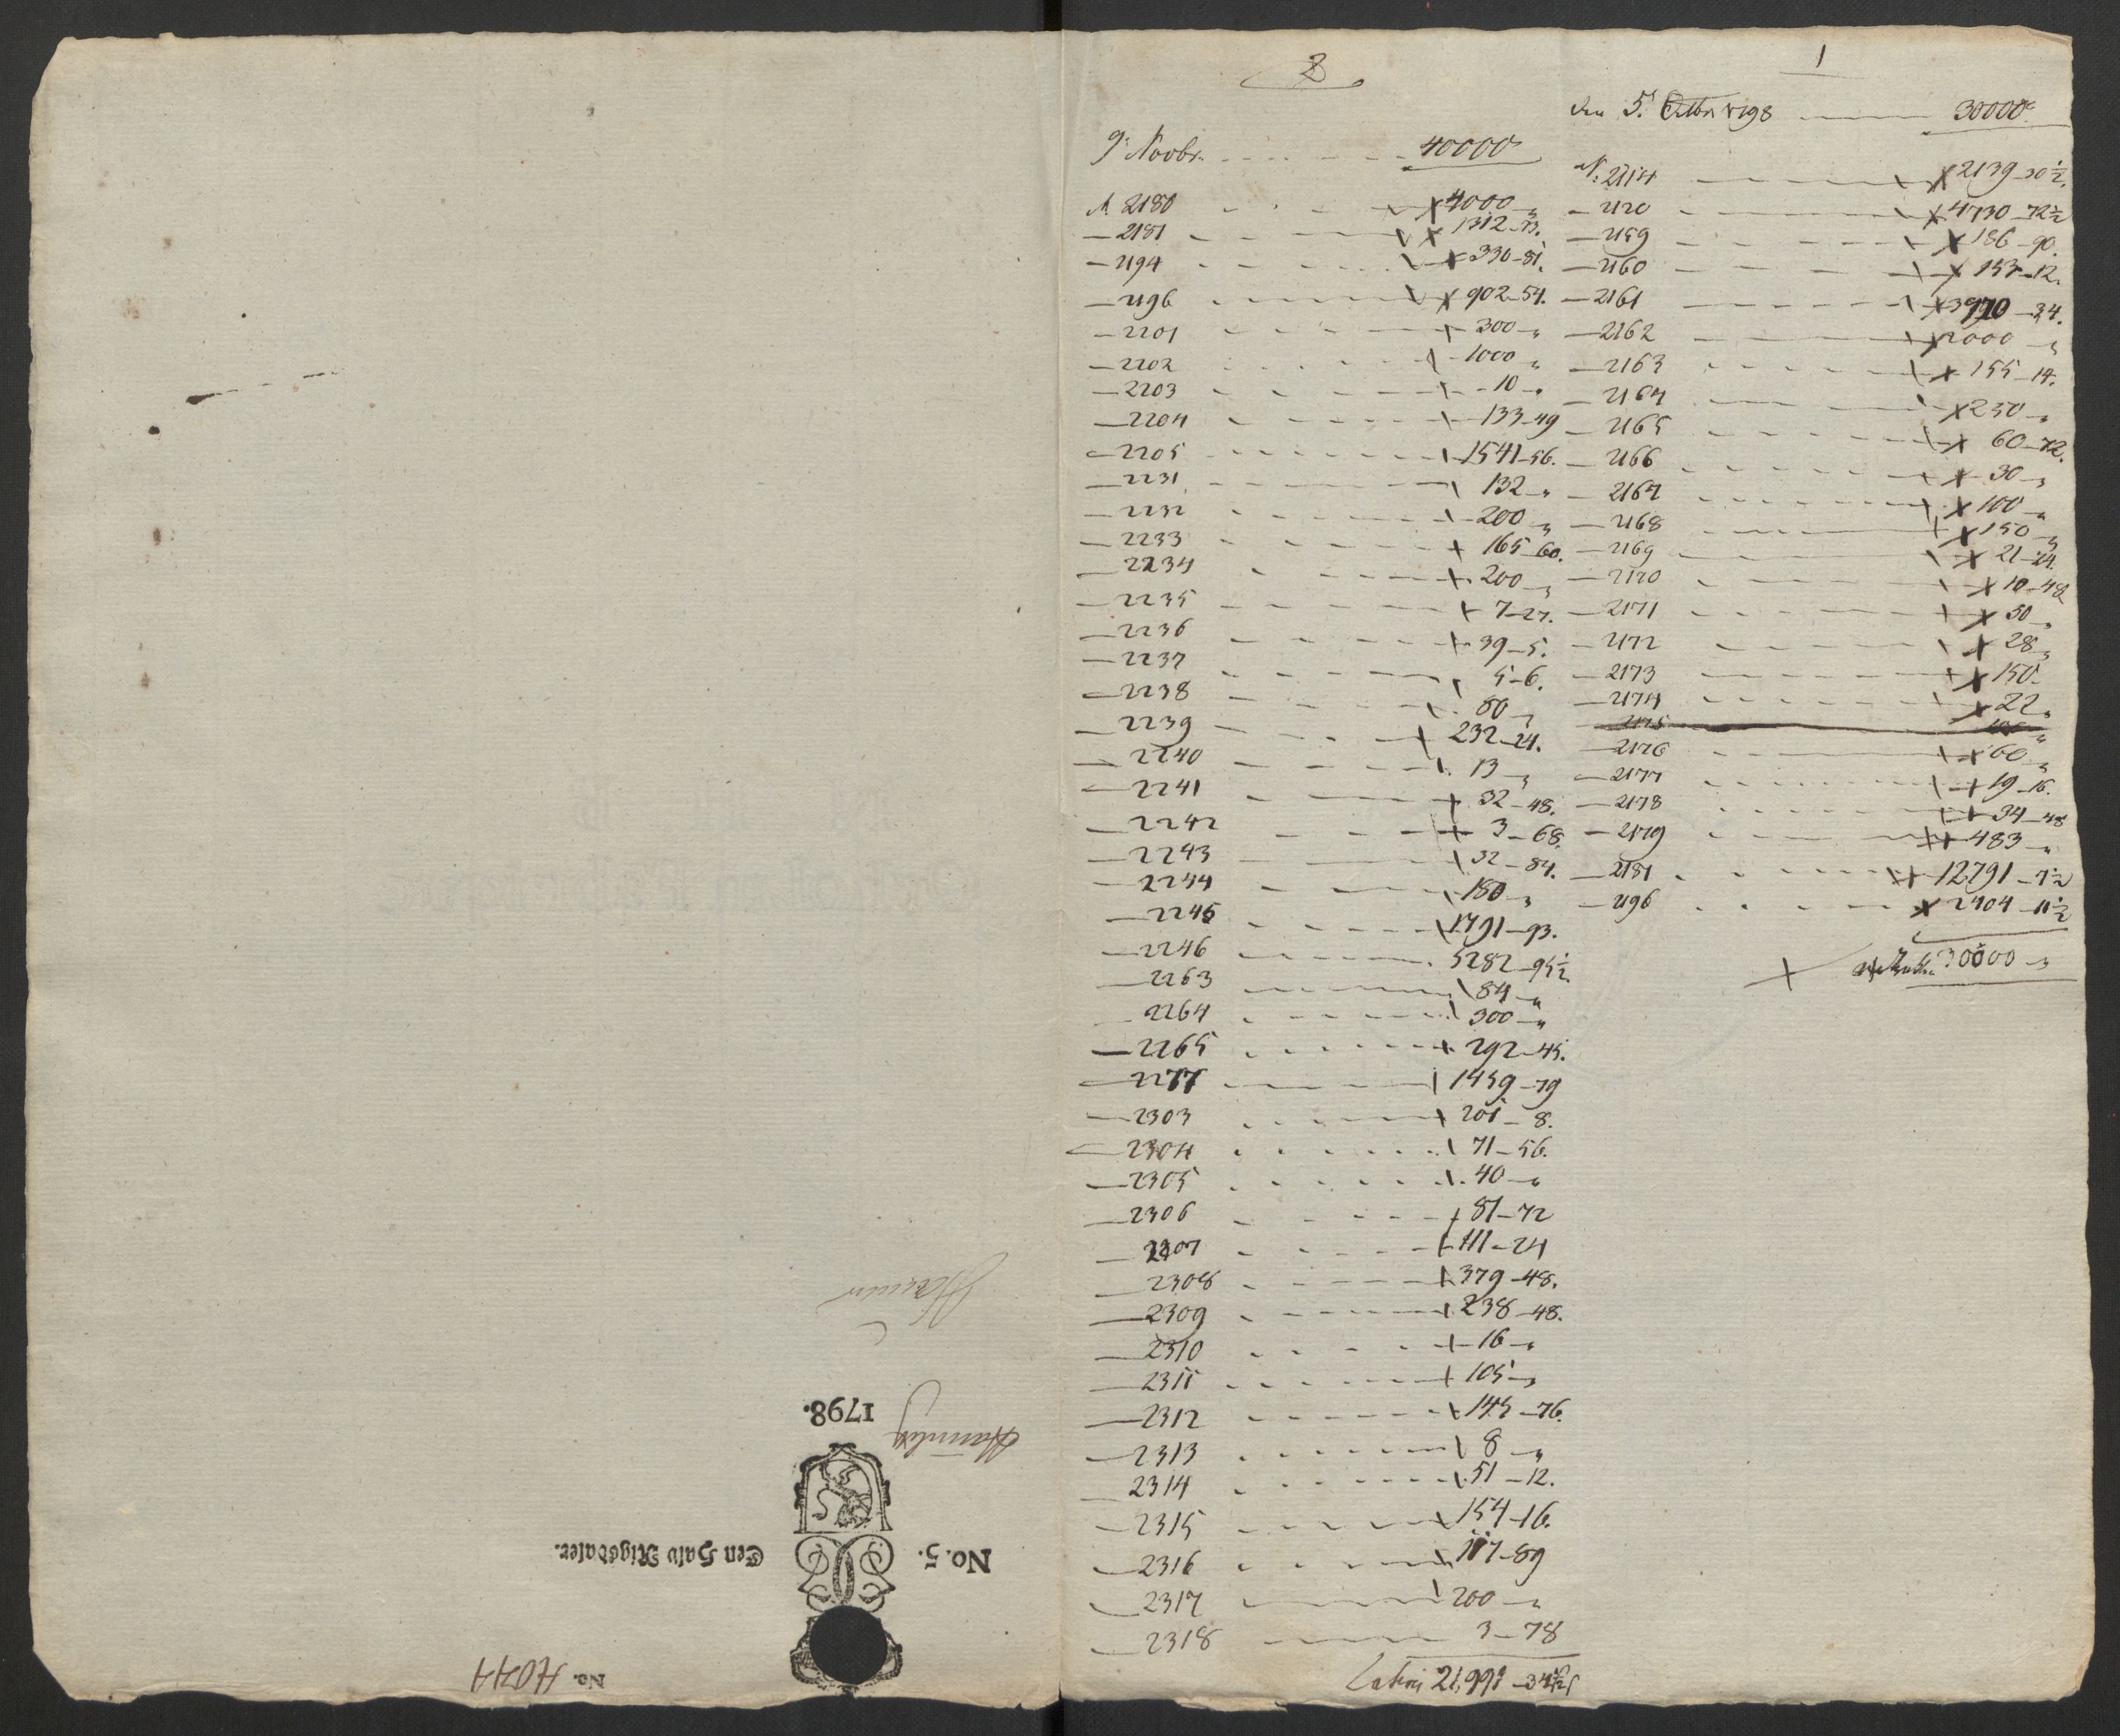 1
den 5. Octbr 1798 30000
N. 2114 2139-30½.
- 2120 4730-72½
- 2159 186-90.
- 2160 153-12.
- 2161 3970-34.
- 2162 1000 "
- 2163 155-14.
- 2164 250 "
- 2165 60-72.
- 2166 30 "
- 2167 100 "
- 2168 150 "
- 2169 21-24.
- 2170 10-48
- 2171 50 "
- 2172 28 "
- 2173 150
- 2174 22 "
- 2175
- 2176 60 "
- 2177 19-16.
- 2178 34-48
- 2179 483 "
- 2181 12791-7½
- 2196 2404-11½
30000 "
2
9 Novbr. 40000
N. 2180 4000 "
- 2181 1312-73.
- 2194 330-81.
- 2196 902-54.
- 2201 300 "
- 2202 1000 "
- 2203 10 "
- 2204 133-49
- 2205 1541-56.
- 2231 132 "
- 2232 200 "
- 2233 165-60.
- 2234 200 "
- 2235 7-27.
- 2236 39-5.
- 2237 5-6.
- 2238 60 "
- 2239 232-24.
- 2240 13 "
- 2241 32-48.
- 2242 3-68.
- 2243 32-84.
- 2244 150 "
- 2245 1791-93.
- 2246 5282-95½.
- 2263 84 "
- 2264 300 "
- 2265 292-45.
- 2277 1459-79
- 2303 201-8.
- 2304 71-56.
- 2305 40 "
- 2306 81-72
- 2307 111-24
- 2308 379-48.
- 2309 238-48.
- 2310 16 "
- 2311 105 "
- 2312 145-76.
- 2313 8 "
- 2314 51-12.
- 2315 154-16.
- 2316 117-89
- 2317 200 "
- 2318 3-78
Latus 21,991-34½
No.
No. 5. Een Halv Rigsdaler.
1798.